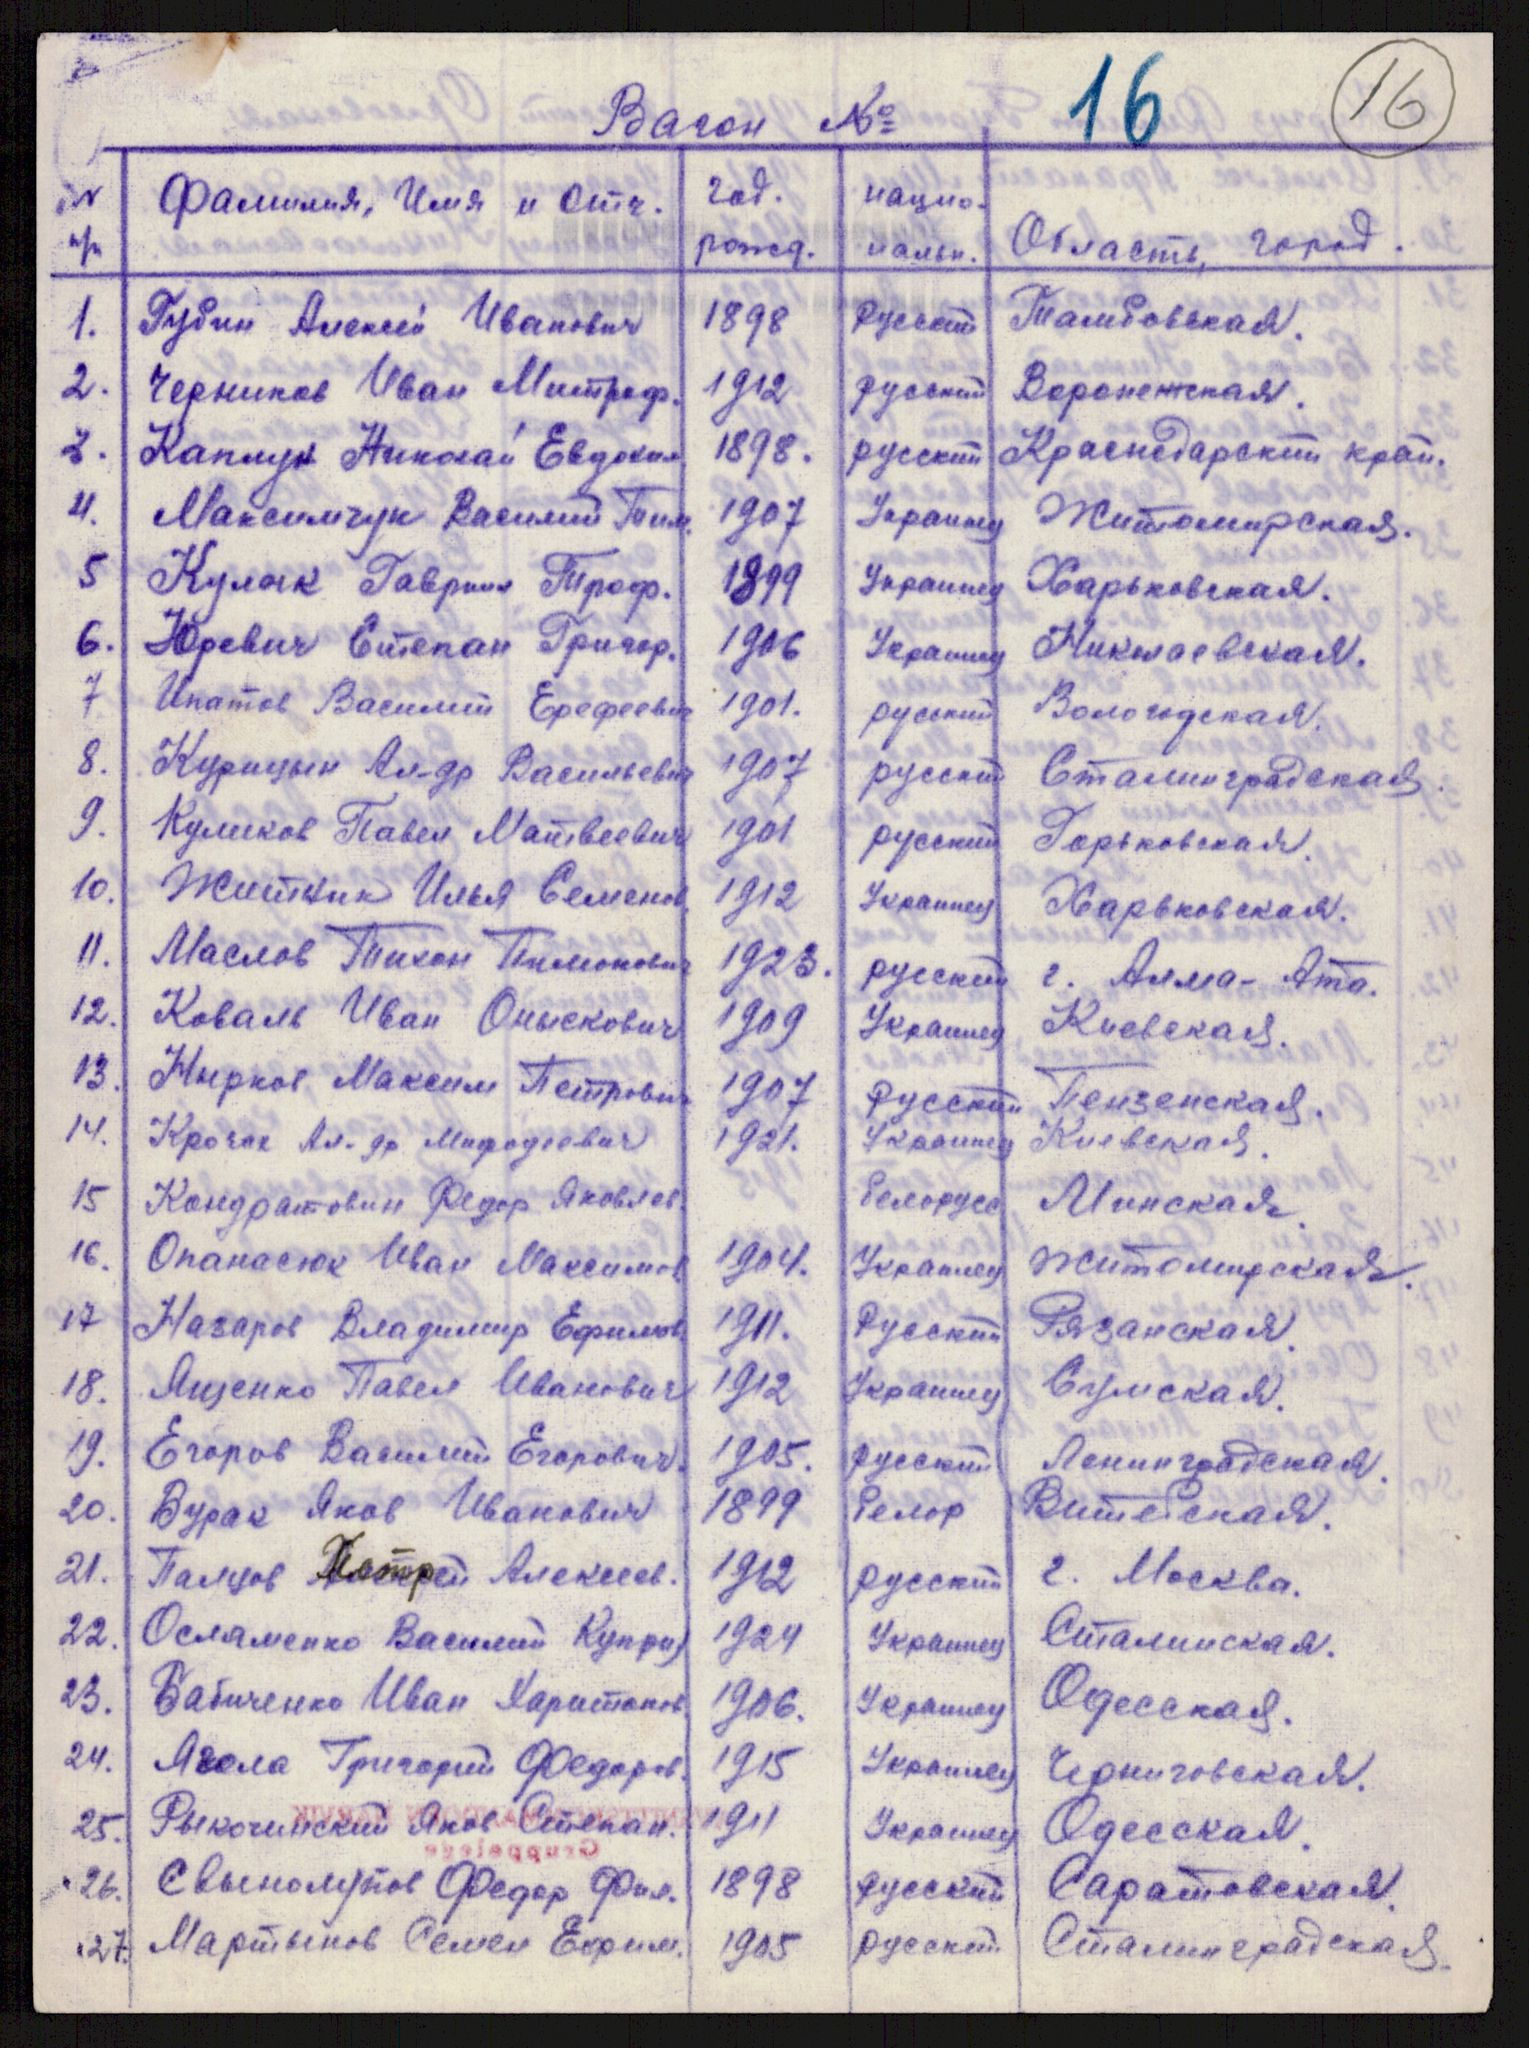 Вагон № 16 16
№ Фамилия, Имя и Отч. год. нацио-
п/п рожд. нальн. Область, город.
1. Губин Алексей Иванович 1898 русский Тамбовская.
2. Черников Иван Митроф. 1912 русский Воронежская.
3. Каплун Николай Евдоким 1898. русский Краснодарский край.
4. Максимчук Василий Тим. 1907 Украинец Житомирская.
5 Кулак Гаврил Троф. 1899 Украинец Харьковская.
6. Юревич Степан Григор. 1906 Украинец Николаевская.
7 Ипатов Василий Ерефеевич 1901. русский Вологодская.
8. Курицын Ал-др Васильевич 1907 русский Сталинградская.
9. Куликов Павел Матвеевич 1901 русский Горьковская.
10. Житник Илья Семенов. 1912 Украинец Харьковская.
11. Маслов Тихон Тимонович 1923. русский г. Алма-Ата.
12. Коваль Иван Онискович 1909 Украинец Киевская.
13. Нырков Максим Петрович 1907 русский Пензенская.
14. Крочак Ал-др Мифодиевич 1921. Украинец Киевская.
15 Кондратович Федор Яковлев. Белорусс Минская.
16. Опанасюк Иван Максимов 1904. Украинец Житомирская.
17 Назаров Владимир Ефимов. 1911. Русский Рязанская.
18. Ященко Павел Иванович 1912 Украинец Сумская.
19. Егоров Василий Егорович. 1905. русский Ленинградская.
20. Бурак Яков Иванович 1899 белор Витебская.
21. Палцов Петр Алексеев. 1912 русский г. Москва.
22. Осламенко Василий Куприя 1924 Украинец Сталинская.
23. Бабиченко Иван Харитонов. 1906. Украинец Одесская.
24. Ягола Григорий Федоров. 1915 Украинец Черниговская.
25. Рыкочинский Яков Степан. 1911 Украинец Одесская.
26. Федор Фил. 1898 русский Саратовская.
27. Мартынов Семен Ефим. 1905 русский Сталинградская.